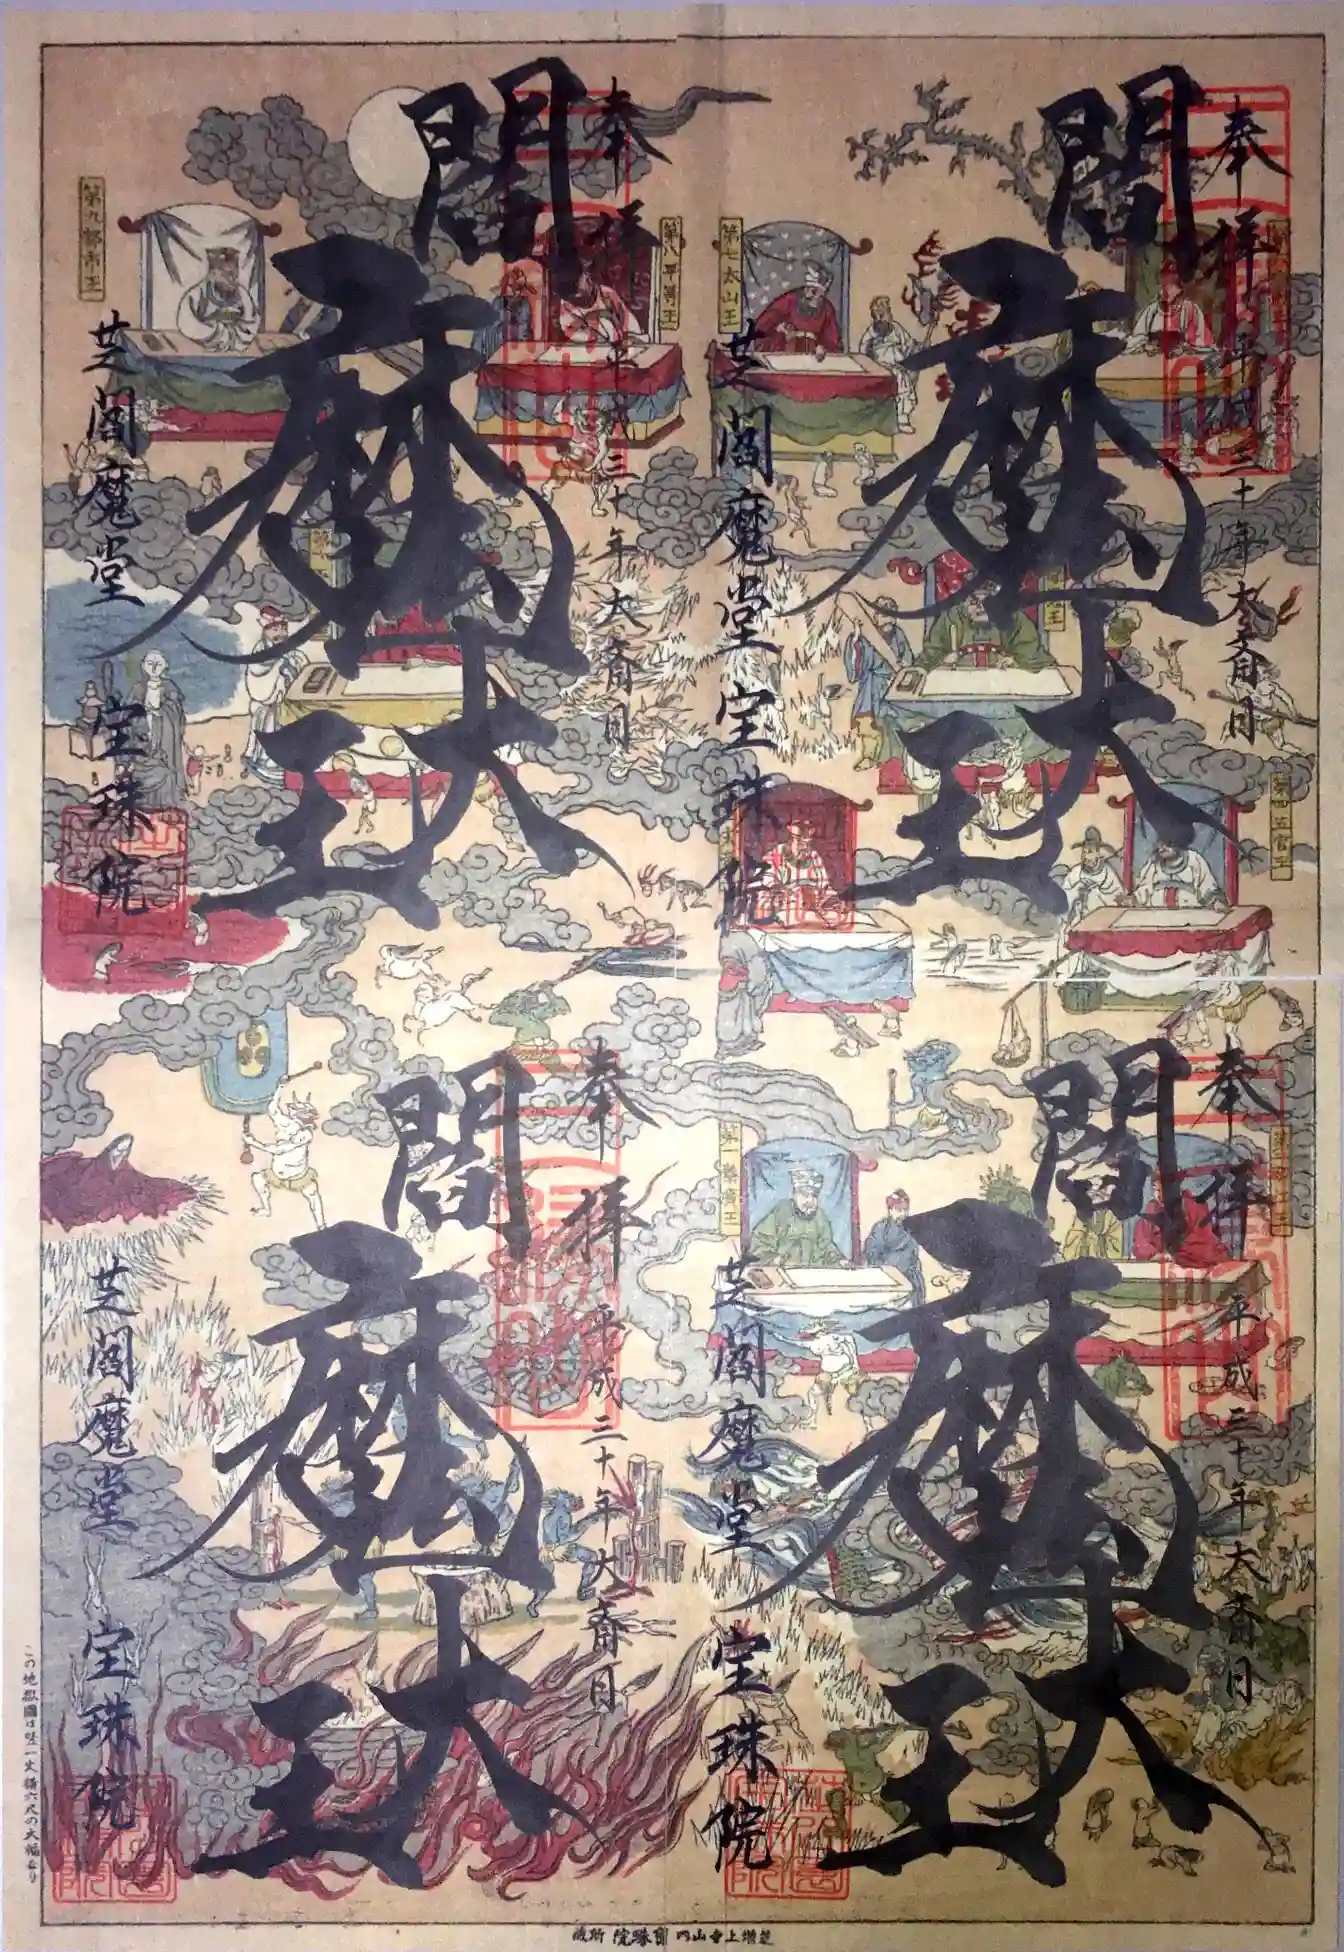 奉拝
平成三十年大斎日
閻魔大王
芝閻魔堂 宝珠院
奉拝
平成三十年大斎日
閻魔大王
芝閻魔堂 宝珠院
奉拝
平成三十年大斎日
閻魔大王
芝閻魔堂 宝珠院
奉拝
平成三十年大斎日
閻魔大王
芝閻魔堂 宝珠院
第四五官王
第七太山王
第八平等王
第九都市王
この地獄圖は竪一丈横六尺の大幅なり
芝増上寺山内 寳珠院 所蔵